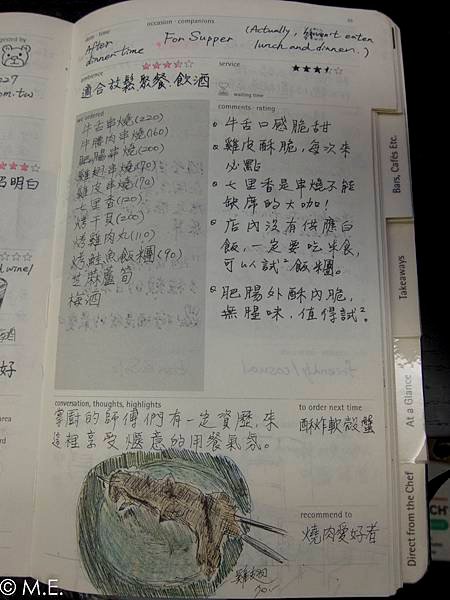 date · time
occasion · companions
After
dinner-time
For Supper
(Actually, I haven't eaten
lunch and dinner.)
ambience
service
適合放鬆聚餐、飲酒
waiting time
we ordered
comments · rating
牛舌串燒(220)
牛腰肉串燒(160)
肥腸串燒(200)
雞翅串燒(70)
雞皮串燒(70)
七里香(120)
烤干貝(200)
烤雞肉丸(110)
烤鮭魚飯糰(90)
芝麻蘆筍
梅酒
牛舌口感脆甜
雞皮酥脆，每次來
必點
七里香是串燒不能
缺席的大咖！
店內沒有供應白
飯，一定要吃米食，
可以試²飯糰。
肥腸外酥內脆，
無腥味，值得試²。
conversation, thoughts, highlights
掌廚的師傅們有一定資歷，來
這裡享受愜意的用餐氣氛。
to order next time
酥炸軟殼蟹
recommend to
燒肉愛好者
雞翅
70.-
Bars, Cafés Etc.
Takeaways
At a Glance
Direct from the Chef
ested by
227
om.tw
名明白
wine/
好
area
© M.E.